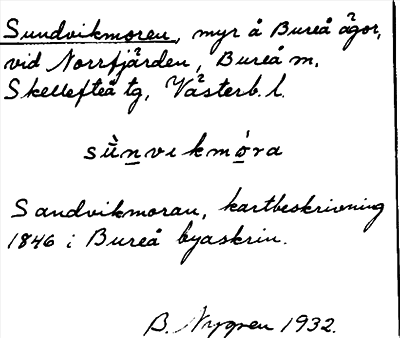 Sundvikmoren, myr å Bureå ägor,
vid Norrfjärden, Bureå m.
Skellefteå tg, Västerb. l.
sùnvikmóra
Sandvikmoran, kartbeskrivning
1846 i Bureå byaskrin.
B. Nygren 1932.